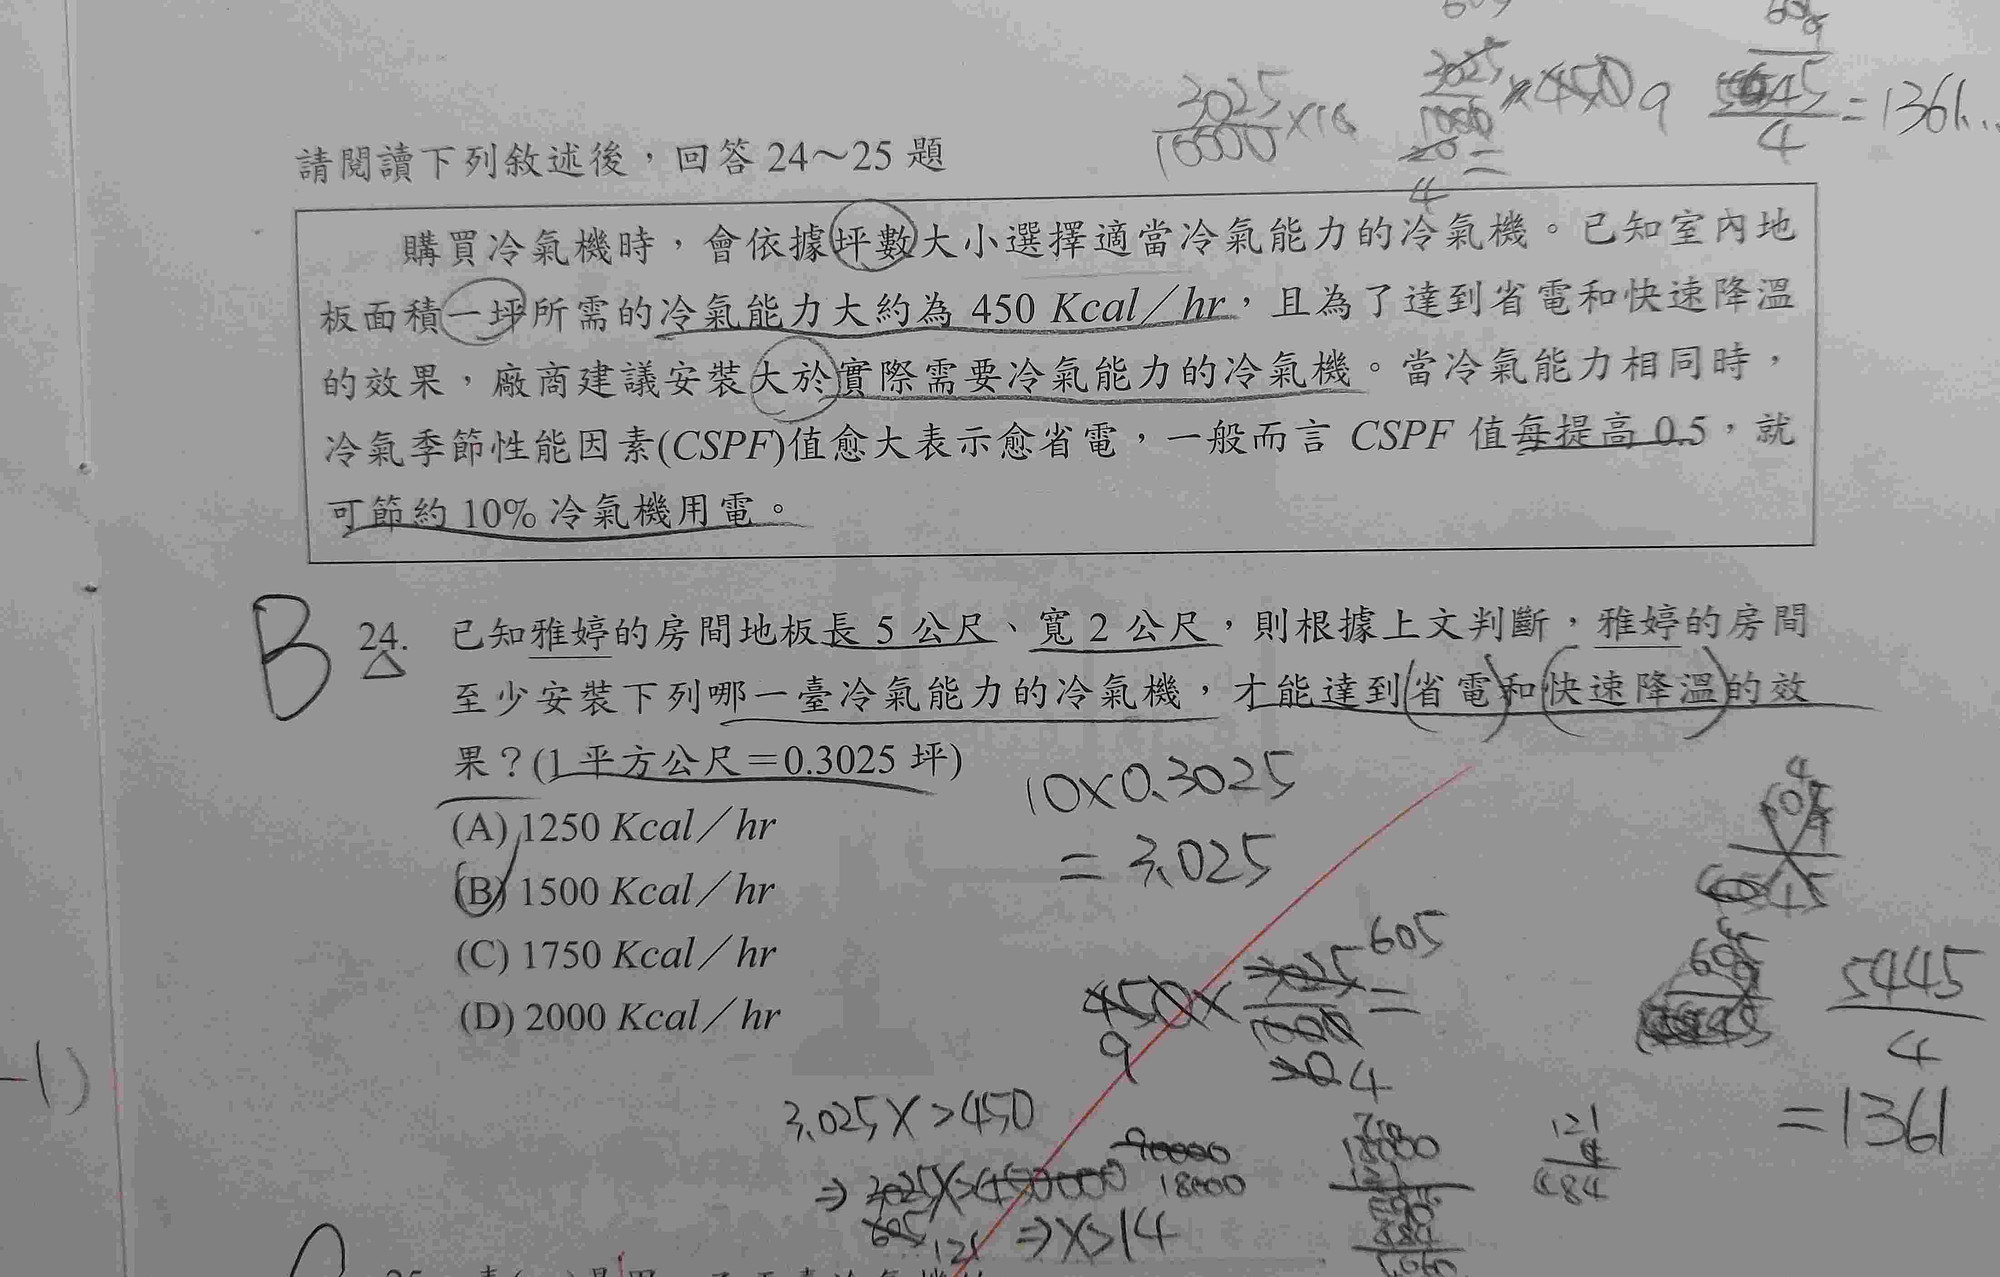 3025
10000 ×10
3025
1000 ×450 9
20 =
4
5445
4 = 1361...
請閱讀下列敘述後，回答 24～25 題
購買冷氣機時，會依據坪數大小選擇適當冷氣能力的冷氣機。已知室內地
板面積一坪所需的冷氣能力大約為 450 Kcal／hr，且為了達到省電和快速降溫
的效果，廠商建議安裝大於實際需要冷氣能力的冷氣機。當冷氣能力相同時，
冷氣季節性能因素(CSPF)值愈大表示愈省電，一般而言 CSPF 值每提高 0.5，就
可節約 10% 冷氣機用電。
B 24. 已知雅婷的房間地板長 5 公尺、寬 2 公尺，則根據上文判斷，雅婷的房間
至少安裝下列哪一臺冷氣能力的冷氣機，才能達到省電和快速降溫的效
果？(1 平方公尺＝0.3025 坪)
(A) 1250 Kcal／hr
(B) 1500 Kcal／hr
(C) 1750 Kcal／hr
(D) 2000 Kcal／hr
10×0.3025
= 3.025
605
450×3025
1000 =
9 20 4
5445
4
= 1361
-1)
3.025X>450
90000
⇒ 3025X>450000 18000
605 121 ⇒X>14
121
4
484